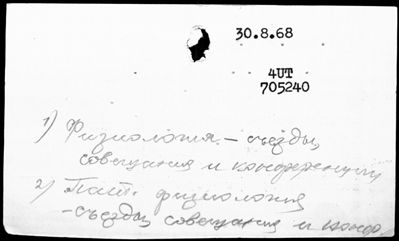 30.8.68
4UT
705240
1) Физиология – съезды,
совещания и конференции
2) Пат. физиология
– съезды, совещания и конф.